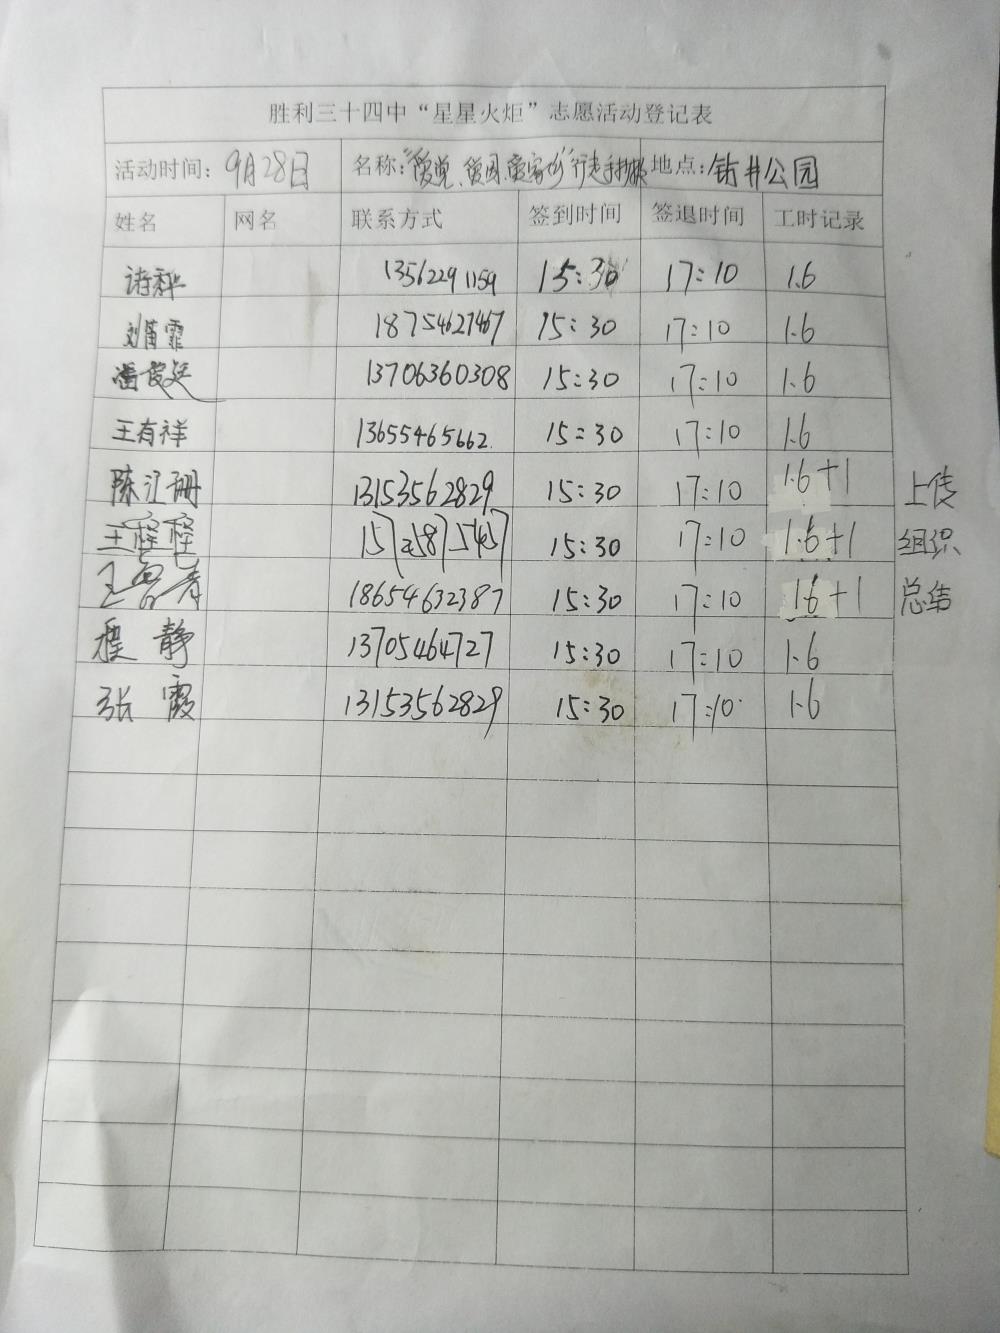 胜利三十四中“星星火炬”志愿活动登记表
活动时间：9月28日 名称：“爱党、爱国、爱家乡”行走 地点：钻井公园
姓名 网名 联系方式 签到时间 签退时间 工时记录
13562291159 15:30 17:10 1.6
18754627467 15:30 17:10 1.6
13706360308 15:30 17:10 1.6
王有祥 13655465662 15:30 17:10 1.6
陈汇珊 13153562829 15:30 17:10 1.6+1 上传
15725875457 15:30 17:10 1.6+1 组织
18654632387 15:30 17:10 1.6+1 总结
程静 13705464727 15:30 17:10 1.6
张霞 13153562829 15:30 17:10 1.6